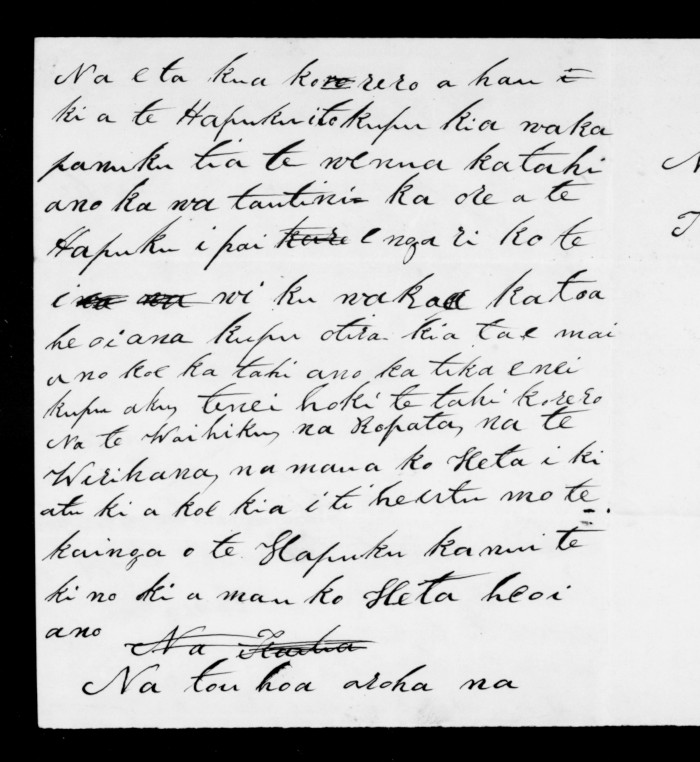 Na e ta kua korero a hau i
ki a te Hapuku i to kupu kia waka
panuku tia te wenua katahi
ano ka wa tautini ka ore a te
Hapuku i pai kare e nga ri ko te
i wi ku waka e katoa
he oi ana kupu otira kia tae mai
a no koe ka tahi ano ka tika enei
kupu aku, tenei hoki te tahi korero
Na te Waihiku, na Ropata, na te
Wirihana, na maua ko Heta i ki
atu ki a koe kia i ti he mo te
kainga o te Hapuku ka nui te
ki no ki a mau ko Heta heoi
ano
Na
Na tou hoa aroha na
N
T